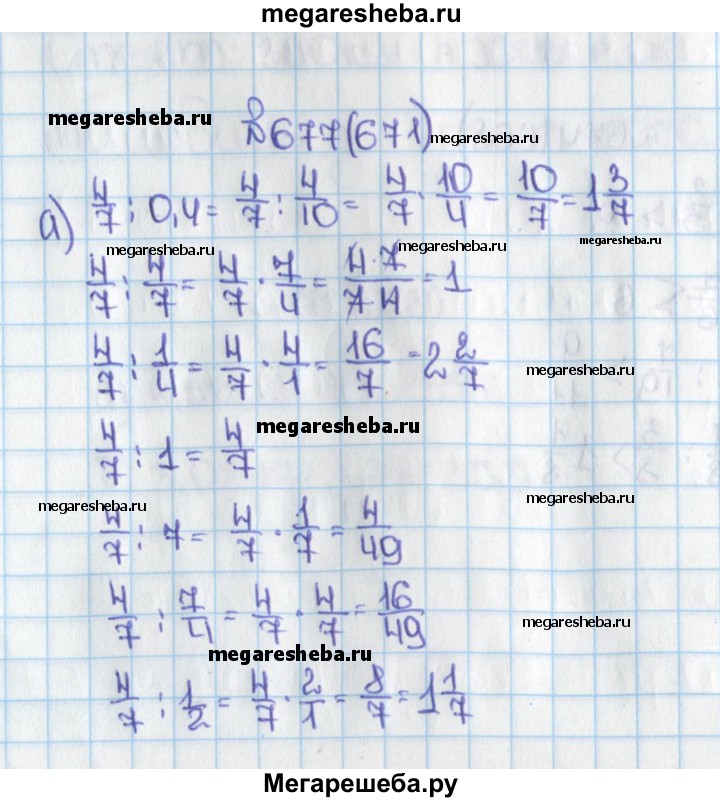 megaresheba.ru
megaresheba.ru
№677(671) megaresheba.ru
а) 4/7 : 0,4 = 4/7 : 4/10 = 4/7 · 10/4 = 10/7 = 1 3/7
megaresheba.ru megaresheba.ru megaresheba.ru
4/7 : 4/7 = 4/7 · 7/4 = 4·7/7·4 = 1
4/7 : 1/4 = 4/7 · 4/1 = 16/7 = 2 2/7 megaresheba.ru
megaresheba.ru
4/7 : 1 = 4/7
megaresheba.ru megaresheba.ru
4/7 : 7 = 4/7 · 1/7 = 4/49
4/7 : 7/4 = 4/7 · 4/7 = 16/49 megaresheba.ru
megaresheba.ru
4/7 : 1/2 = 4/7 · 2/1 = 8/7 = 1 1/7
Мегарешеба.ру